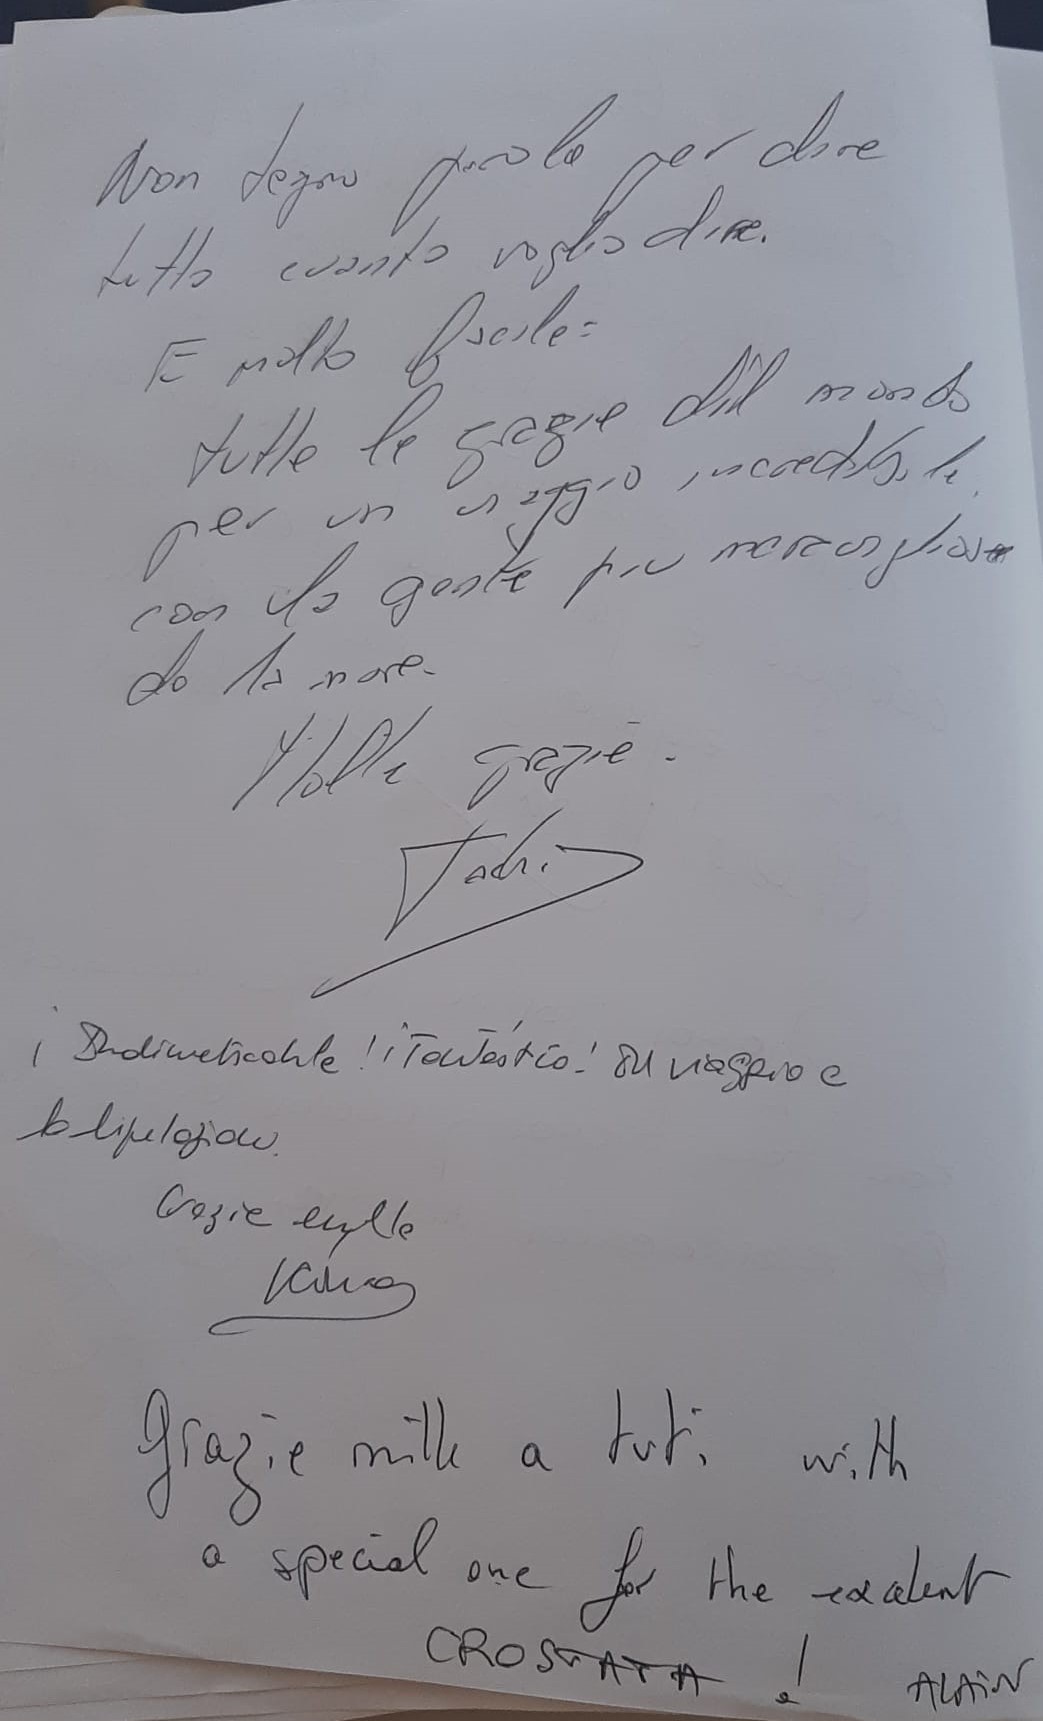 Non tegno parola per dire
tutto cuanto voglio dire.
E molto facile:
tutte le grazie dil mondo
per un viaggio incredibile,
con la gente piu maravigliosa
do la nave.
Molte grazie.
¡Indimeticable! ¡Fantástico! Un viaggio e
Grazie mille
Grazie mille a tuti with
a special one for the excelent
CROSTATA ! ALAIN